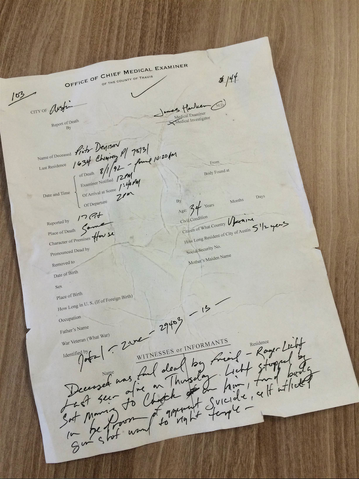 103
OFFICE OF CHIEF MEDICAL EXAMINER
OF THE COUNTY OF TRAVIS
#144
CITY OF Austin
Report of Death
By
James
Medical Examiner
Medical Investigator
Name of Deceased
Last Residence 1634 78731
Date and Time
of Death 8/1/92 10:20pm
Examiner Notified 12PM
Of arrival at Scene
Of Departure 2pm
From
Body Found at
By
Reported by
Place of Death Same
Character of Premises House
Pronounced Dead by
Removed to
Date of Birth
Sex
Place of Birth
How Long in U. S. (If of Foreign Birth)
Occupation
Father's Name
War Veteran (What War)
Identified by
Age 34 Years Months Days
Civil Condition
Citizen of What Country Ukraine
How Long Resident of City of Austin 5 1/2 years
Social Security No.
Mother's Maiden Name
29403 - 15 -
WITNESSES or INFORMANTS
Name
Residence
Deceased was found dead by friend - Roger
Last seen alive on Thursday. stopped by
Sat Morning to Check on him, found body
in bedroom of apparent Suicide, self inflicted
Gun shot wound to right temple -